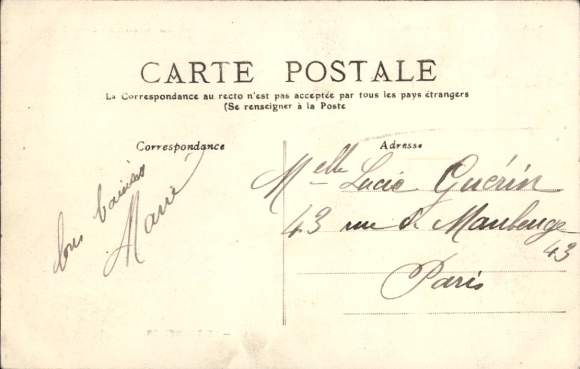 CARTE POSTALE
La Correspondance au recto n'est pas acceptée par tous les pays étrangers
(Se renseigner à la Poste
Correspondance
bons baisers
Marie
Adresse
Melle Lucie Guérin
43 rue de Maubeuge
43
Paris